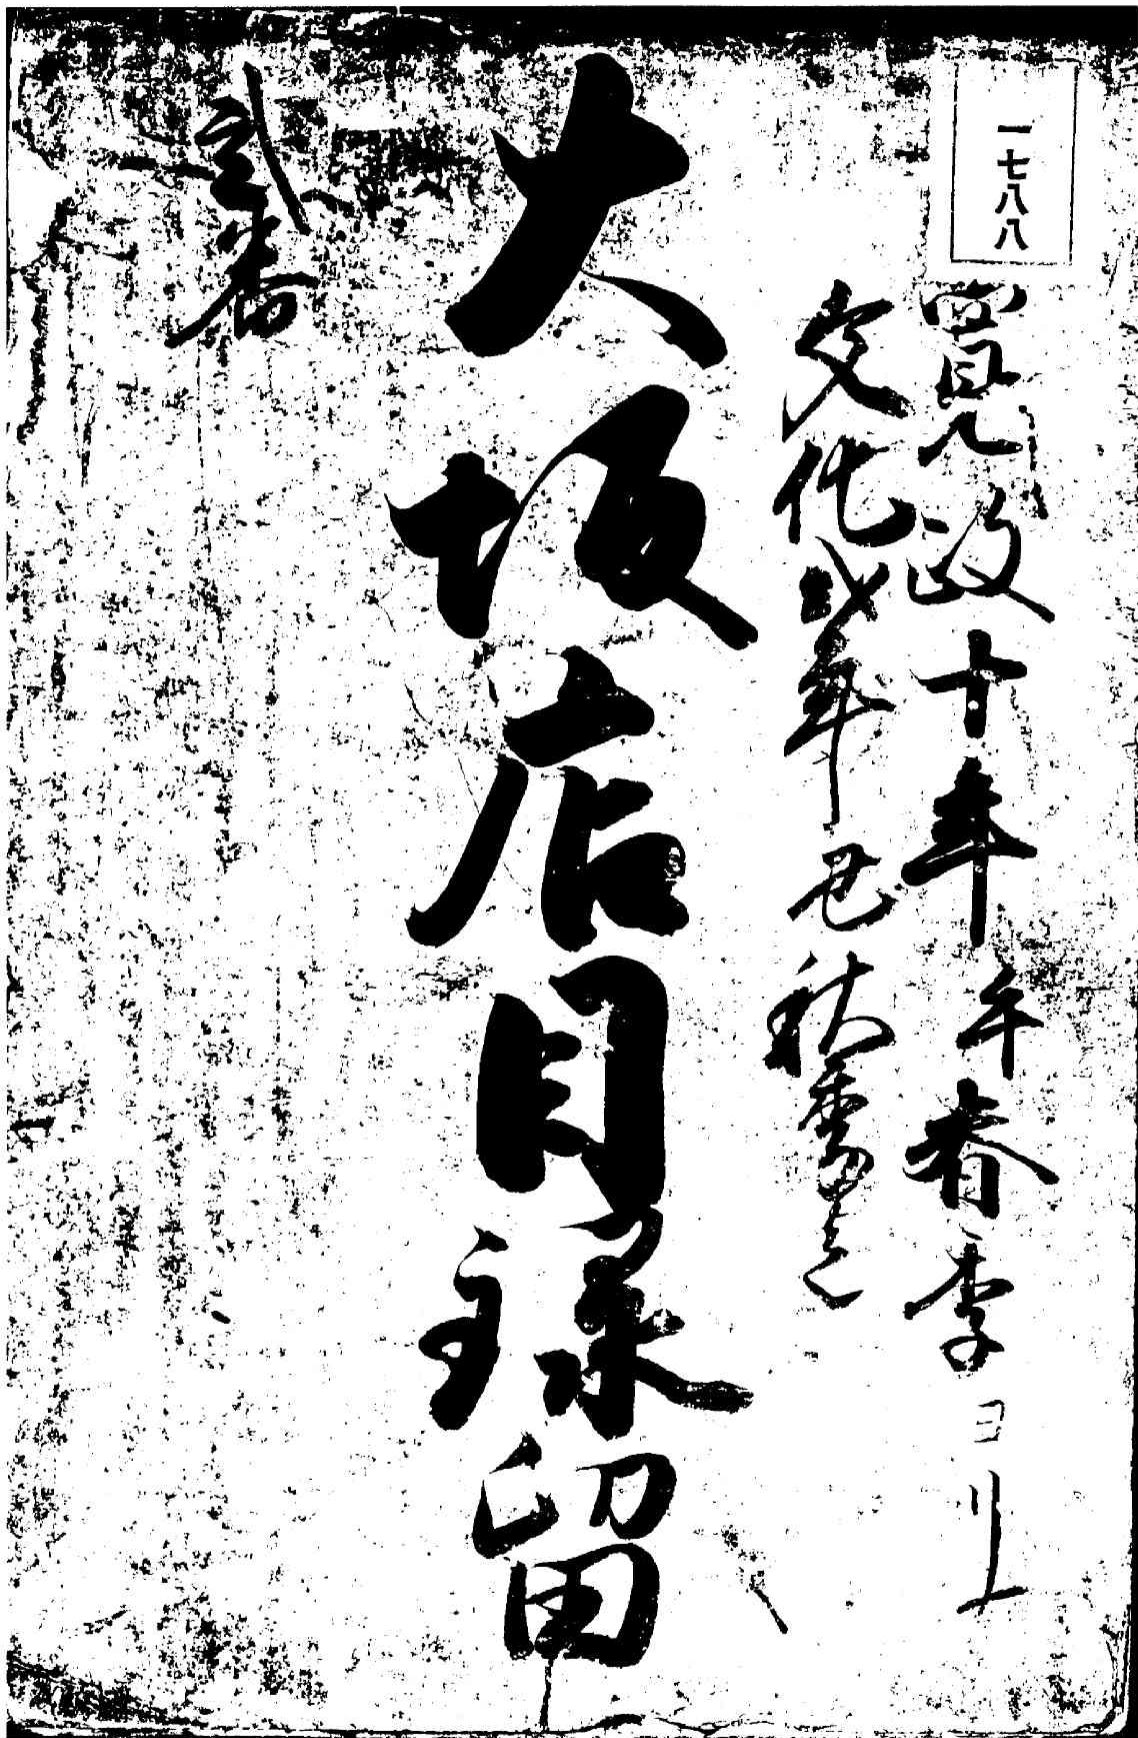 一七八八
寛政十年午春季ヨリ
文化弐年丑秋季迄
大坂店目録留
弐番